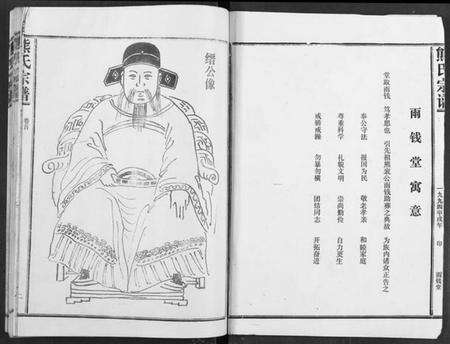 熊氏宗谱
一九九四甲戌年 印
雨钱堂
雨钱堂寓意
堂取雨钱 笃孝思也 引先祖熊衮公雨钱助葬之典故 为族内诸众正告之
奉公守法 报国为民 敬老孝亲 和睦家庭
尊重科学 礼貌文明 崇尚勤俭 自力更生
戒骄戒躁 勿暴勿横 团结同志 开拓奋进
缙公像
熊氏宗谱
卷首